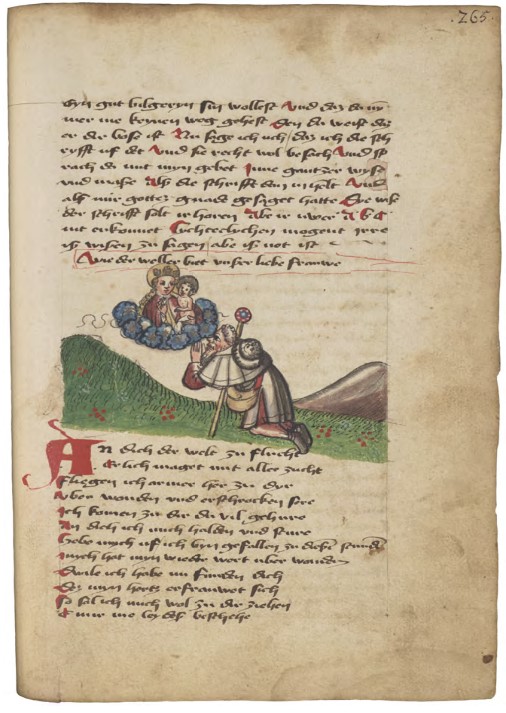 .265.
Eyn gut bilgeryn sin wollest Und daz du ny
mer me keynen weg gehest Den du weist daz
er dir bose ist Nu sage ich uch / daz ich die sch
ryfft uf det Und sie recht wol besach Und sp
rach da mit myn gebet Inne gantzer wyse
und masse Als die schrifft dan in helt Und
als mir gottes gnade gesaget hatte Die wise
der schrifft solt ir horen Abe ir uwer A b c
nit erkonnet Lichteclichen mogent irre
ist wysen zu sagen / abe is not ist
Wie der weller biet unser liebe frauwe
AN dich der welt zu flucht
Erlich maget mit aller zucht
Fliegen ich armer her zu dir
Uber wonden und erschrocken sere
Ich komen zu dir du vil gehure
An dich ich mich halden und sture
Hebe mych uf ich byn gefallen zu dieser stunde
mych hat myn wieder wert uber wonden
Dwile ich habe in finden dich
Daz myn hertz erfrauwet sich
So sal ich mich wol zu dir ziehen
mir me leydes beschehe